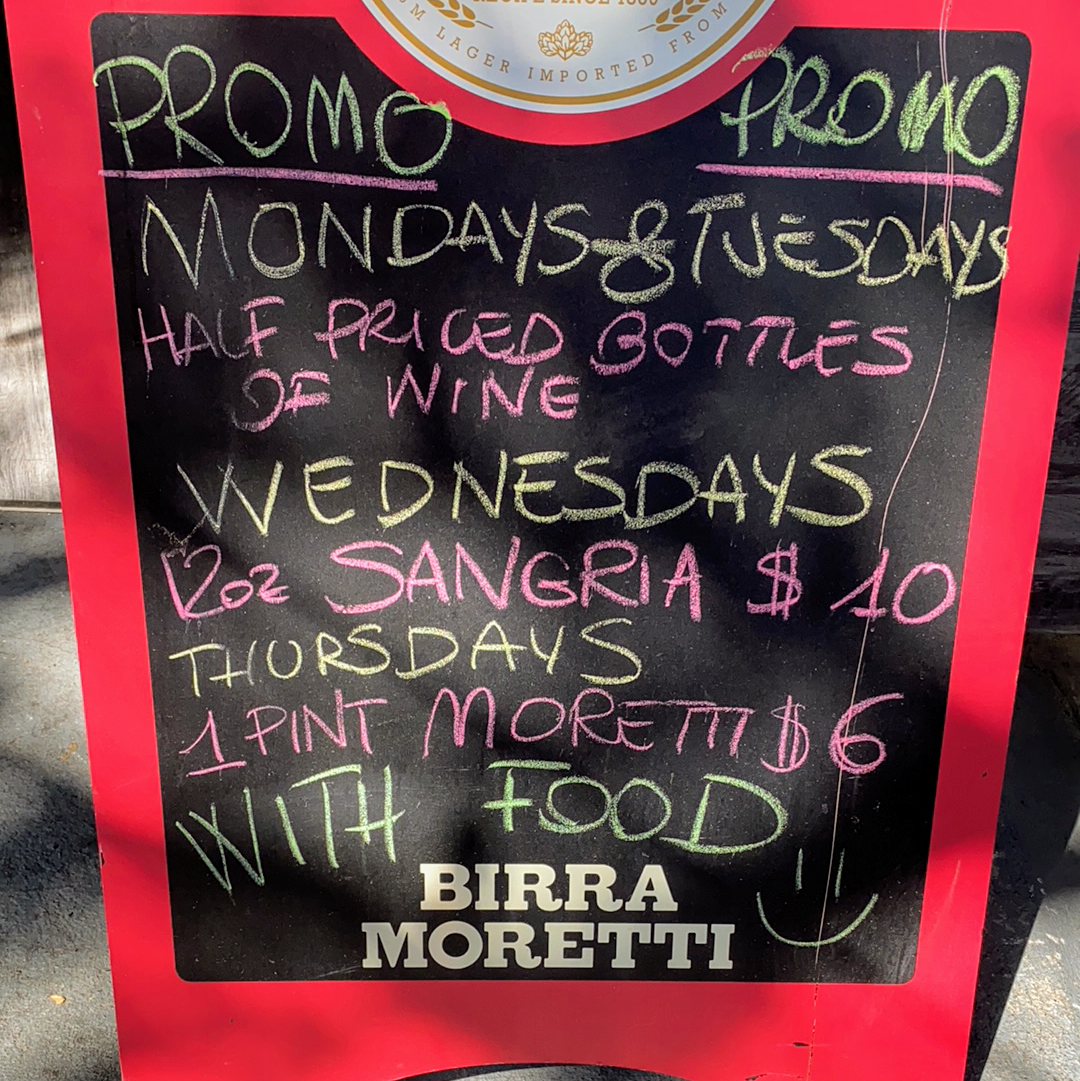 LAGER IMPORTED FROM
PROMO PROMO
MONDAYS & TUESDAYS
HALF PRICED BOTTLES
OF WINE
WEDNESDAYS
12oz SANGRIA $ 10
THURSDAYS
1 PINT MORETTI $ 6
WITH FOOD
BIRRA
MORETTI